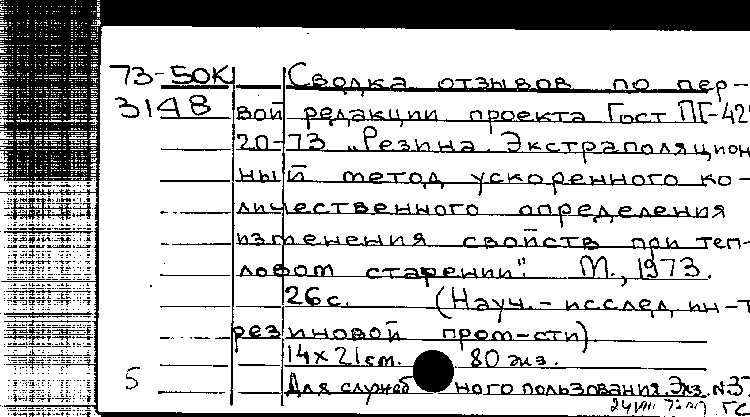 73-50К Сводка отзывов по пер-
3148 вой редакции проекта Гост ПГ-42
20-73 „Резина. Экстраполяцион
ный метод ускоренного ко-
личественного определения
изменения свойств при теп-
ловом старении". М., 1973.
26 с. (Науч.-исслед. ин-т
резиновой пром-сти).
14х21 см. 80 экз.
5 Для служебного пользования. Экз. №